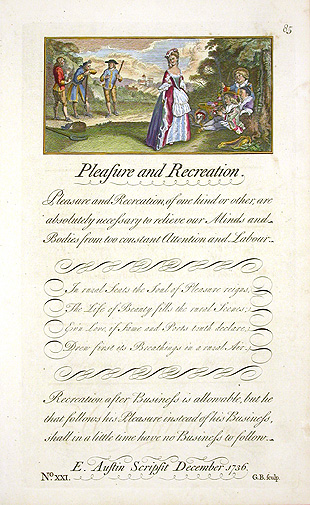 85
Pleaſure and Recreation.
Pleaſure and Recreation, of one kind or other, are
abſolutely neceſsary to relieve our Minds and
Bodies from too constant Attention and Labour.
In rural Seats the Soul of Pleaſure reigns;
The Life of Beauty fills the rural Scenes;
Ev'n Love, if Fame and Poets truth declare,
Drew first its Breathings in a rural Air.
Recreation after Buſineſs is allowable, but he
that follows his Pleaſure instead of his Buſineſs,
shall in a little time have no Buſineſs to follow.
E. Auſtin Scripſit December 1736.
No. XXI.
G.B. sculp.